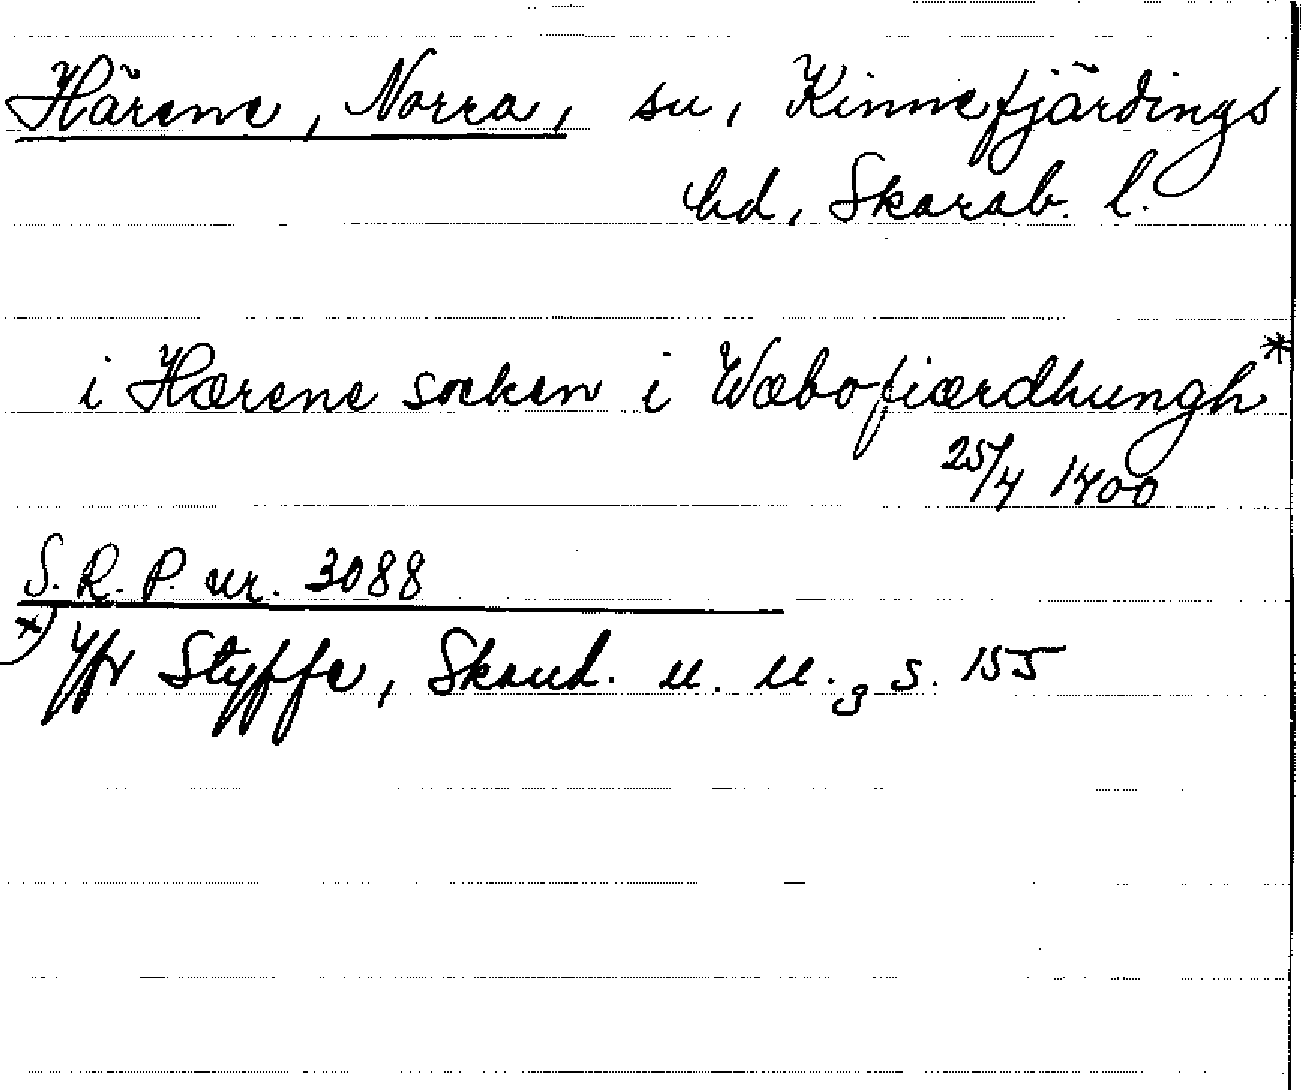 Härene, Norra, sn, Kinnefjärdings
hd, Skarab. l.
i Hærene soken i Wæbofiærdhungh*
25/4 1400
S. R. P. nr. 3088
x) Jfr Styffe, Skand. u. u.3 s. 155